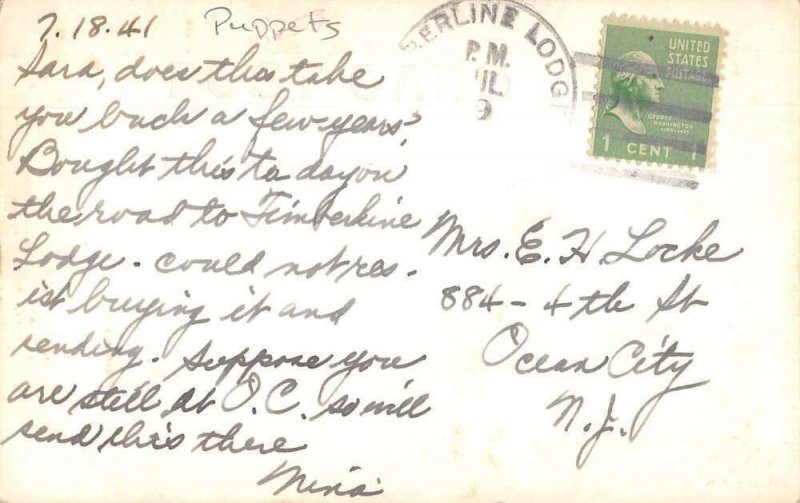 7.18.41
Puppets
Sara, does this take
you back a few years?
Bought this to day on
the road to Timberline
Lodge - could not res-
ist buying it and
sending. Suppose you
are still at O.C. so will
send this there
Mina
BERLINE LODG
P.M.
9
UNITED
STATES
POSTAGE
GEORGE
WASHINGTON
1 CENT 1
Mrs. E. H Locke
884 - 4th St
Ocean City
N.J.